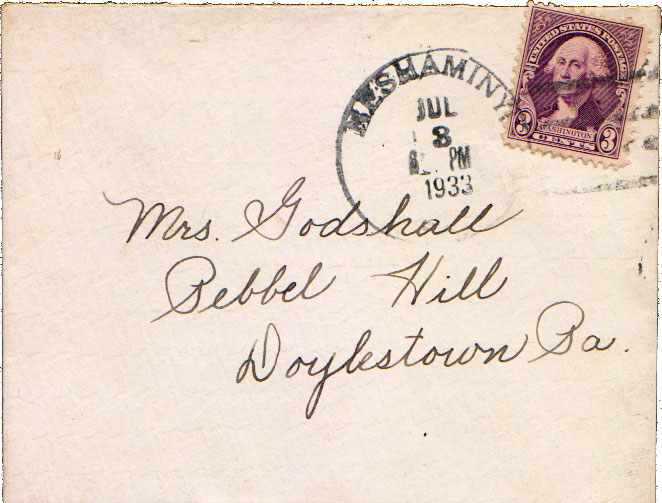 UNITED STATES POSTAGE
3 WASHINGTON 3
CENTS
NESHAMINY
JUL
8
PM
1933
Mrs. Godshall
Pebbel Hill
Doylestown Pa.